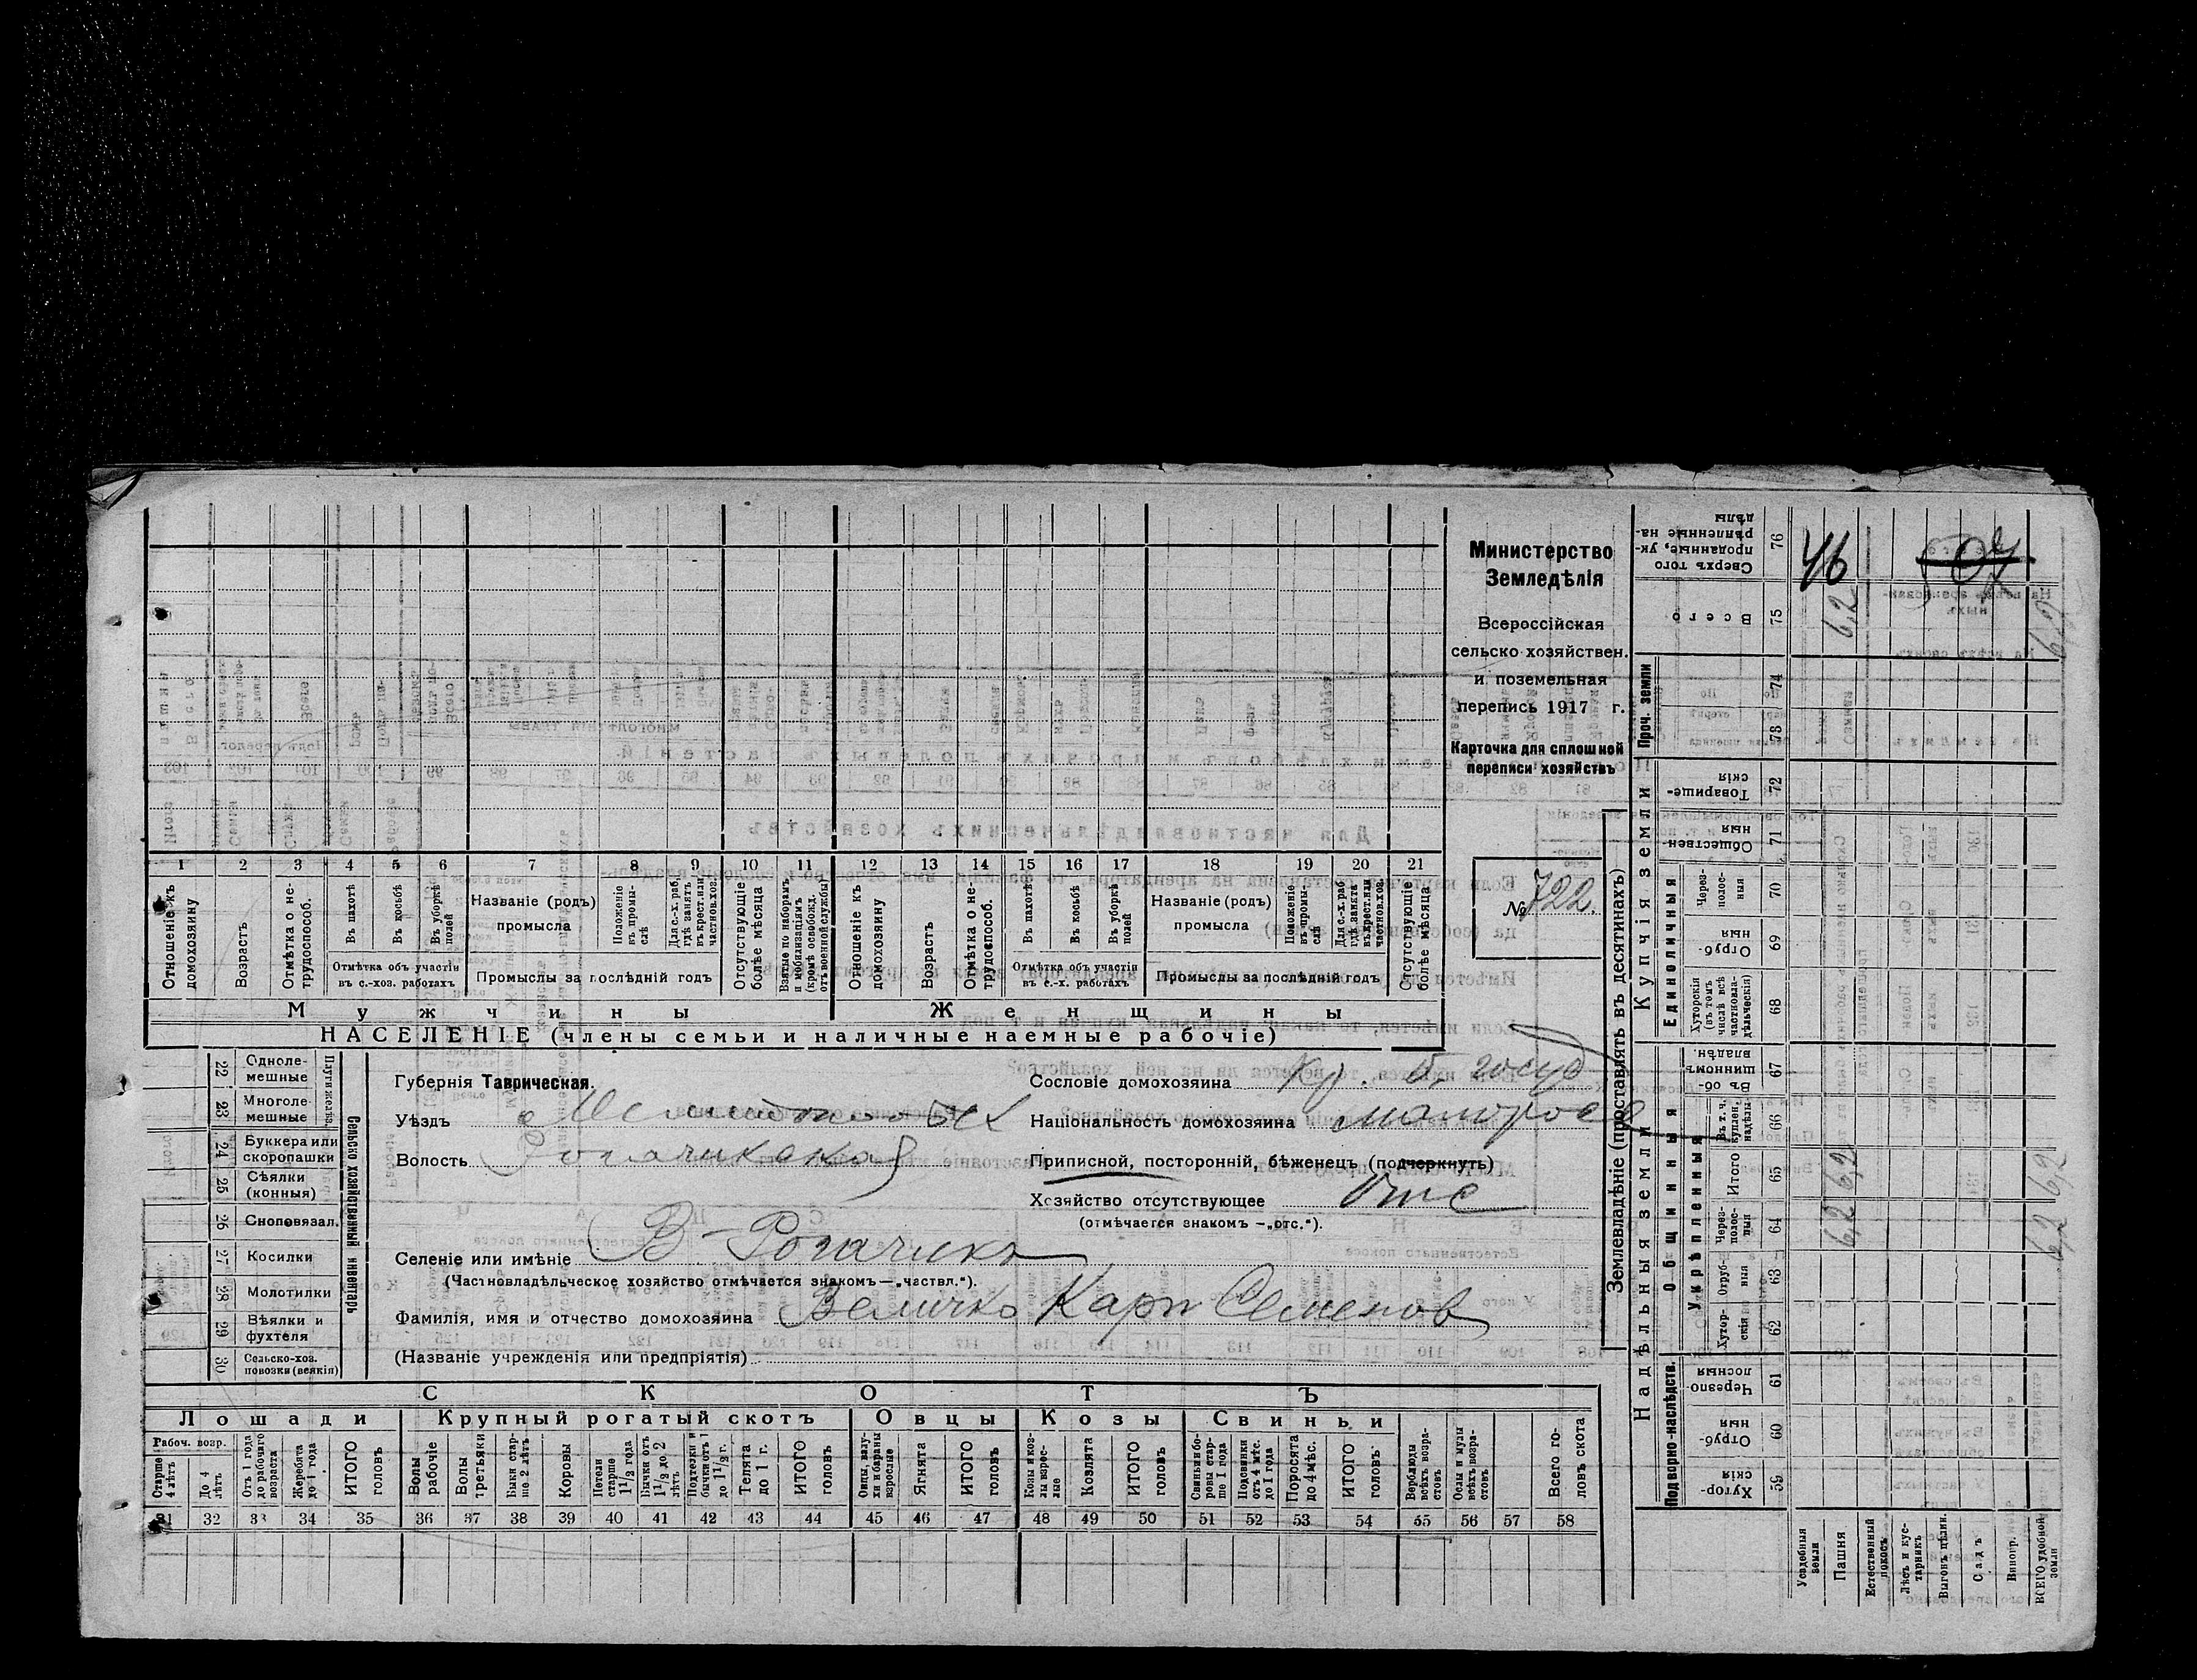 Министерство
Земледѣлія
Всероссійская
сельско хозяйствен.
и поземельная
перепись 1917 г.
Карточка для сплошной
переписи хозяйствъ
№ 722.
1 2 3 4 5 6 7 8 9 10 11 12 13 14 15 16 17 18 19 20 21
Отношеніе къ домохозяину
Возрастъ
Отмѣтка о не-трудоспособ.
Въ пахотѣ
Въ косьбѣ
Въ уборкѣ полей
Отмѣтка объ участіи
въ с.-хоз. работахъ
Названіе (родъ)
промысла
Положеніе въ промы-слѣ
Для с.-х. раб., гдѣ занятъ въ крест. или частнов. хоз.
Промыслы за послѣдній годъ
Отсутствующіе болѣе мѣсяца
Взятые по наборамъ и мобилизаціямъ (кромѣ освобожд. отъ военной службы)
Отношеніе къ домохозяину
Возрастъ
Отмѣтка о не-трудоспособ.
Въ пахотѣ
Въ косьбѣ
Въ уборкѣ полей
Отмѣтка объ участіи
въ с.-х. работахъ
Названіе (родъ)
промысла
Положеніе въ промы-слѣ
Для с.-х. раб. гдѣ занята въ крест. или частнов. хоз.
Промыслы за послѣдній годъ
Отсутствующіе болѣе мѣсяца
Мужчины Женщины
НАСЕЛЕНІЕ (члены семьи и наличные наемные рабочіе)
Сельско хозяйственный инвентарь
Плуги желѣз.
22 Одноле-мешные
23 Многоле-мешные
24 Буккера или скоропашки
25 Сѣялки (конныя)
26 Сноповязал.
27 Косилки
28 Молотилки
29 Вѣялки и фухтеля
30 Сельско-хоз. повозки (всякія)
Губернія Таврическая.
Уѣздъ
Волость Рогачикская
Селеніе или имѣніе В-Рогачикъ
(Частновладѣльческое хозяйство отмѣчается знакомъ—„частвл.“).
Фамилія, имя и отчество домохозяина Величко Карп Семенов
(Названіе учрежденія или предпріятія)
Сословіе домохозяина Кр. б. госуд
Національность домохозяина малоросс
Приписной, посторонній, бѣженецъ (подчеркнуть)
Хозяйство отсутствующее Отс
(отмѣчается знакомъ —„отс.“).
СКОТЪ
Лошади Крупный рогатый скотъ Овцы Козы Свиньи
Рабоч. возр.
Старше 4 лѣтъ
До 4 лѣтъ
Отъ 1 года до рабочаго возраста
Жеребята до 1 года
ИТОГО головъ
Волы рабочіе
Волы третьяки
Быки стар-ше 2 лѣтъ
Коровы
Нетели старше 1 1/2 года
Бычки отъ 1 1/2 до 2 лѣтъ
Подтелки и бычки отъ 1 до 1 1/2 г.
Телята до 1 г.
ИТОГО головъ
Овцы, валу-хи и бараны взрослые
Ягнята
ИТОГО головъ
Козы и коз-лы взрос-лые
Козлята
ИТОГО головъ
Свиньи и бо-ровы стар-ше 1 года
Подсвинки отъ 4 мѣс. до 1 года
Поросята до 4 мѣс.
ИТОГО головъ
Верблюды всѣхъ возра-стовъ
Ослы и мулы всѣхъ возра-стовъ
Всего го-ловъ скота
31 32 33 34 35 36 37 38 39 40 41 42 43 44 45 46 47 48 49 50 51 52 53 54 55 56 57 58
Землевладѣніе (проставлять въ десятинахъ)
Надѣльныя земли Купчія земли Проч. земли
Подворно-наслѣдств.
Общинныя
Укрѣпленныя
Единоличныя
76 Сверхъ того проданные, ук-рѣпленные на-дѣлы
75 Всего
74
73
72 Товарище-скія
71 Обществен-ныя
70 Через-полос-ныя
69 Отруб-ныя
68 Хуторскія (въ томъ числѣ всѣ частновла-дѣльческія)
67 Въ об-щинномъ владѣн.
66 Въ т. ч. куплен. надѣлы
65 Итого
64 Через-полос-ныя
63 Отруб-ныя
62 Хутор-скія
61 Черезпо-лосныя
60 Отруб-ныя
59 Хутор-скія
Усадебныя земли
Пашня
Естественный покосъ
Лѣсъ и кус-тарникъ
Выгонъ цѣлин.
Садъ
Виногр.
ВСЕГО удобной земли
46
6,2
6,2
6,2
6,2
6,2
6,2